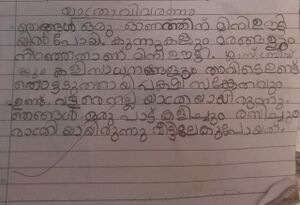 യാത്രാവിവരണം
ഞങ്ങൾ ഒരു ഓണത്തിന് മിനി ഊട്ടി
യിൽ പോയി. കുന്നുകളും മരങ്ങളും
നിറഞ്ഞതാണ് മിനി ഊട്ടി. ഗ്ലാസ് ബ്രിഡ്ജ്
ഉം കളിസാധനങ്ങളും അവിടെ ഉണ്ട്
തൊട്ടടുത്തായി പക്ഷി സങ്കേതവും
ഉണ്ട് വളരെ നല്ല യാത്രയായിരുന്നു.
ഞങ്ങൾ ഒരു പാട്ട് കളിച്ചും രസിച്ചും
രാത്രിയായിരുന്നു വീട്ടിലേക്കുപോയത്.